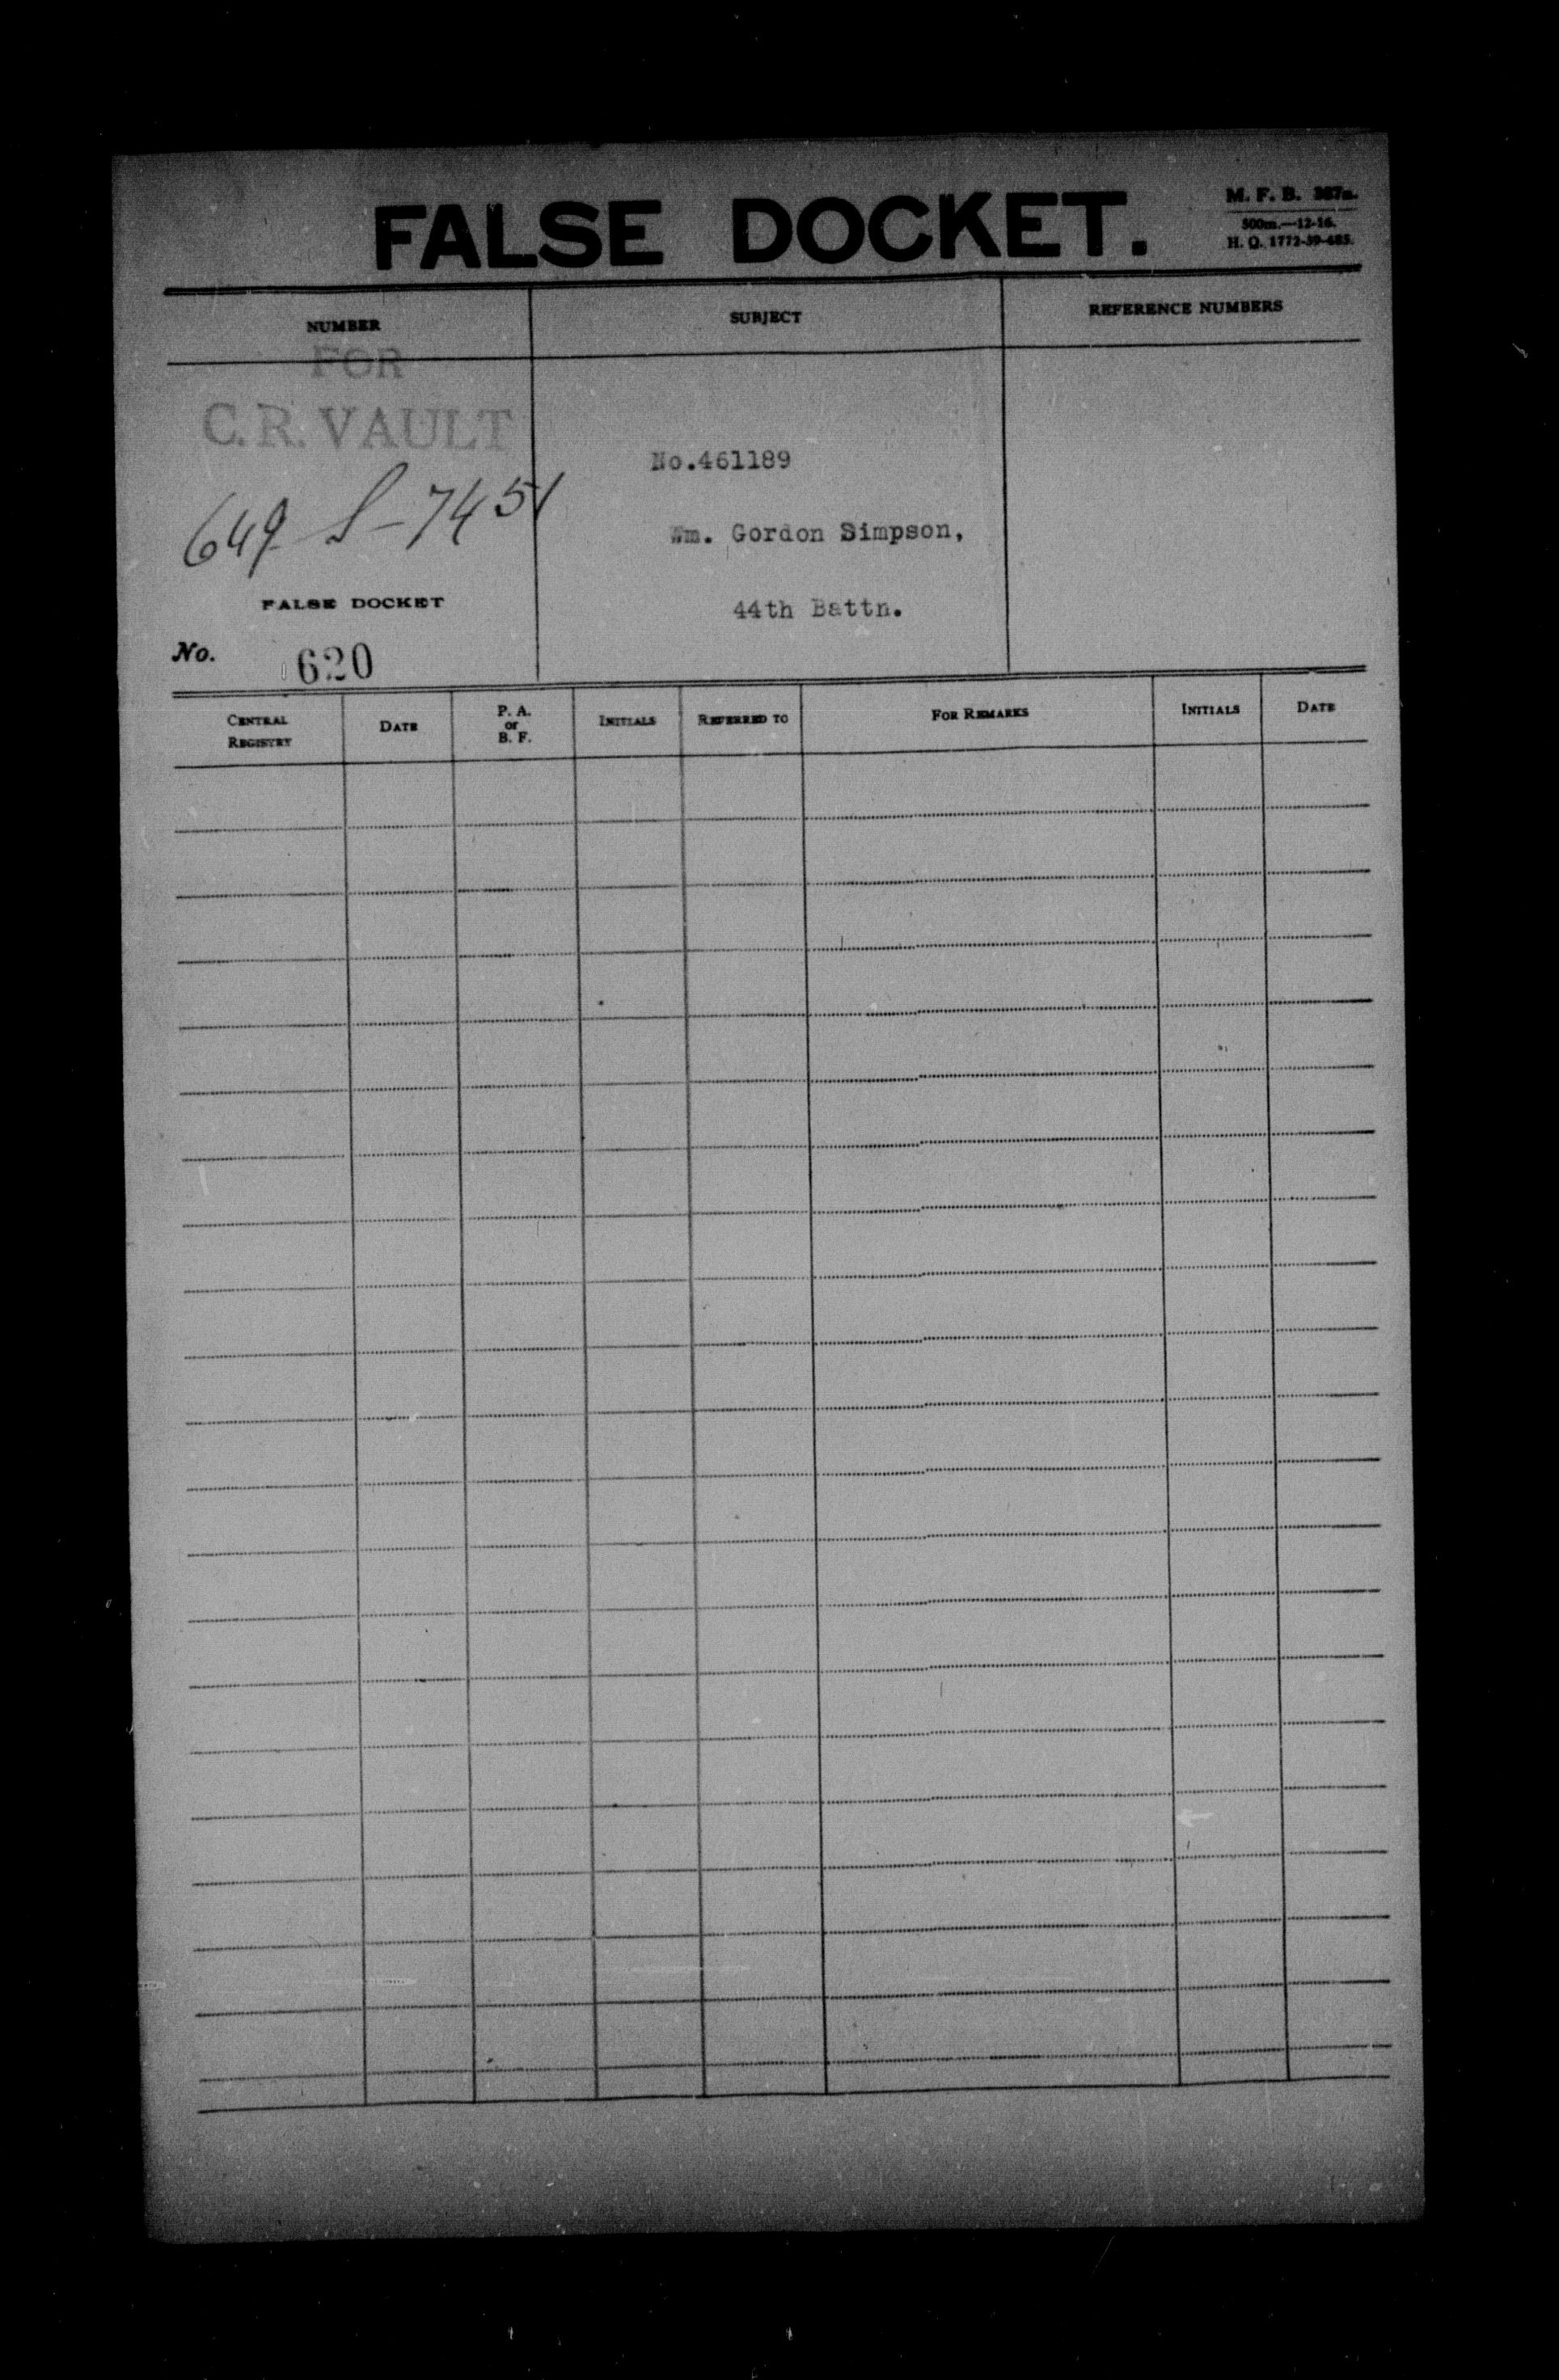 FALSE DOCKET.
M. F. B. 367a.
500m.—12-16.
H. Q. 1772-39-485.
NUMBER
SUBJECT
REFERENCE NUMBERS
FOR
C. R. VAULT
649 S-7451
No.461189
Wm. Gordon Simpson,
44th Battn.
FALSE DOCKET
No. 620
CENTRAL REGISTRY
DATE
P. A. or B. F.
INITIALS
REFERRED TO
FOR REMARKS
INITIALS
DATE